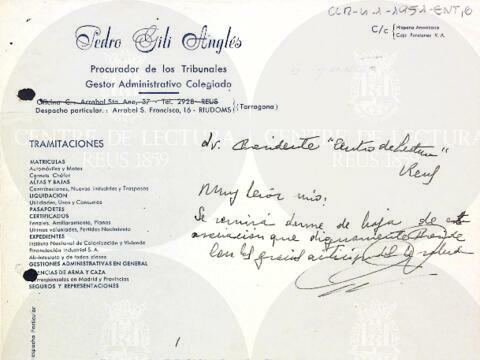 CCR-4.2-1952-ENT,10
Pedro Gili Anglés
C/c
Hispano Americano
Caja Pensiones V. A.
Procurador de los Tribunales
Gestor Administrativo Colegiado
Oficina C.: Arrabal Sta. Ana, 37 - Tel. 2928 - REUS
Despacho particular.: Arrabal S. Francisco, 16 - RIUDOMS
(Tarragona)
CENTRE DE LECTURA
REUS 1859
Sr. Presidente "Centro de Lectura"
Reus
TRAMITACIONES
MATRICULAS
Automóviles y Motos
Carnets Chófer
ALTAS Y BAJAS
Contribuciones, Nuevas Industrias y Traspasos
LIQUIDACION
Utilidades, Usos y Consumos
PASAPORTES
CERTIFICADOS
Penales, Amillaramiento, Planos
Ultimas voluntades, Partidas Nacimiento
EXPEDIENTES
Instituto Nacional de Colonización y Vivienda
Financiación Industrial S.A.
Abintestato y de todas clases
GESTIONES ADMINISTRATIVAS EN GENERAL
LICENCIAS DE ARMA Y CAZA
Corresponsales en Madrid y Provincias
SEGUROS Y REPRESENTACIONES
Muy Señor mío:
Se servirá darme de baja de esta
asociación que dignamente Preside
Con el gracias anticipadas le saluda
Despacho Particular